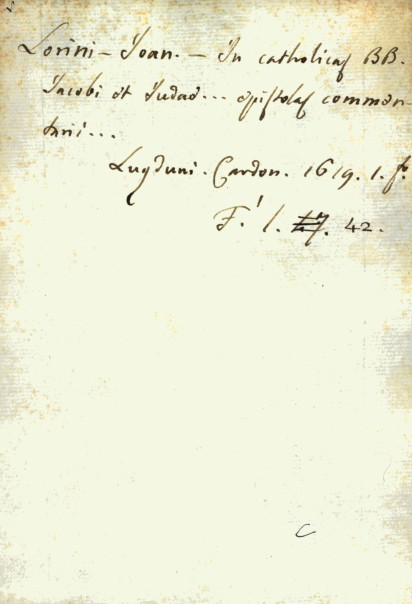 Lorini – Joan. – In catholicas BB.
Jacobi et Judae... epistolas commen-
tarii...
Lugduni. Cardon. 1619. 1. fo
F. l. 42.
C